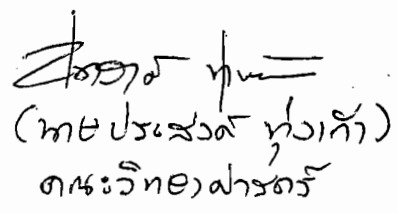 (นายประสงค์ ทุ่งเก้า)
คณะวิทยาศาสตร์